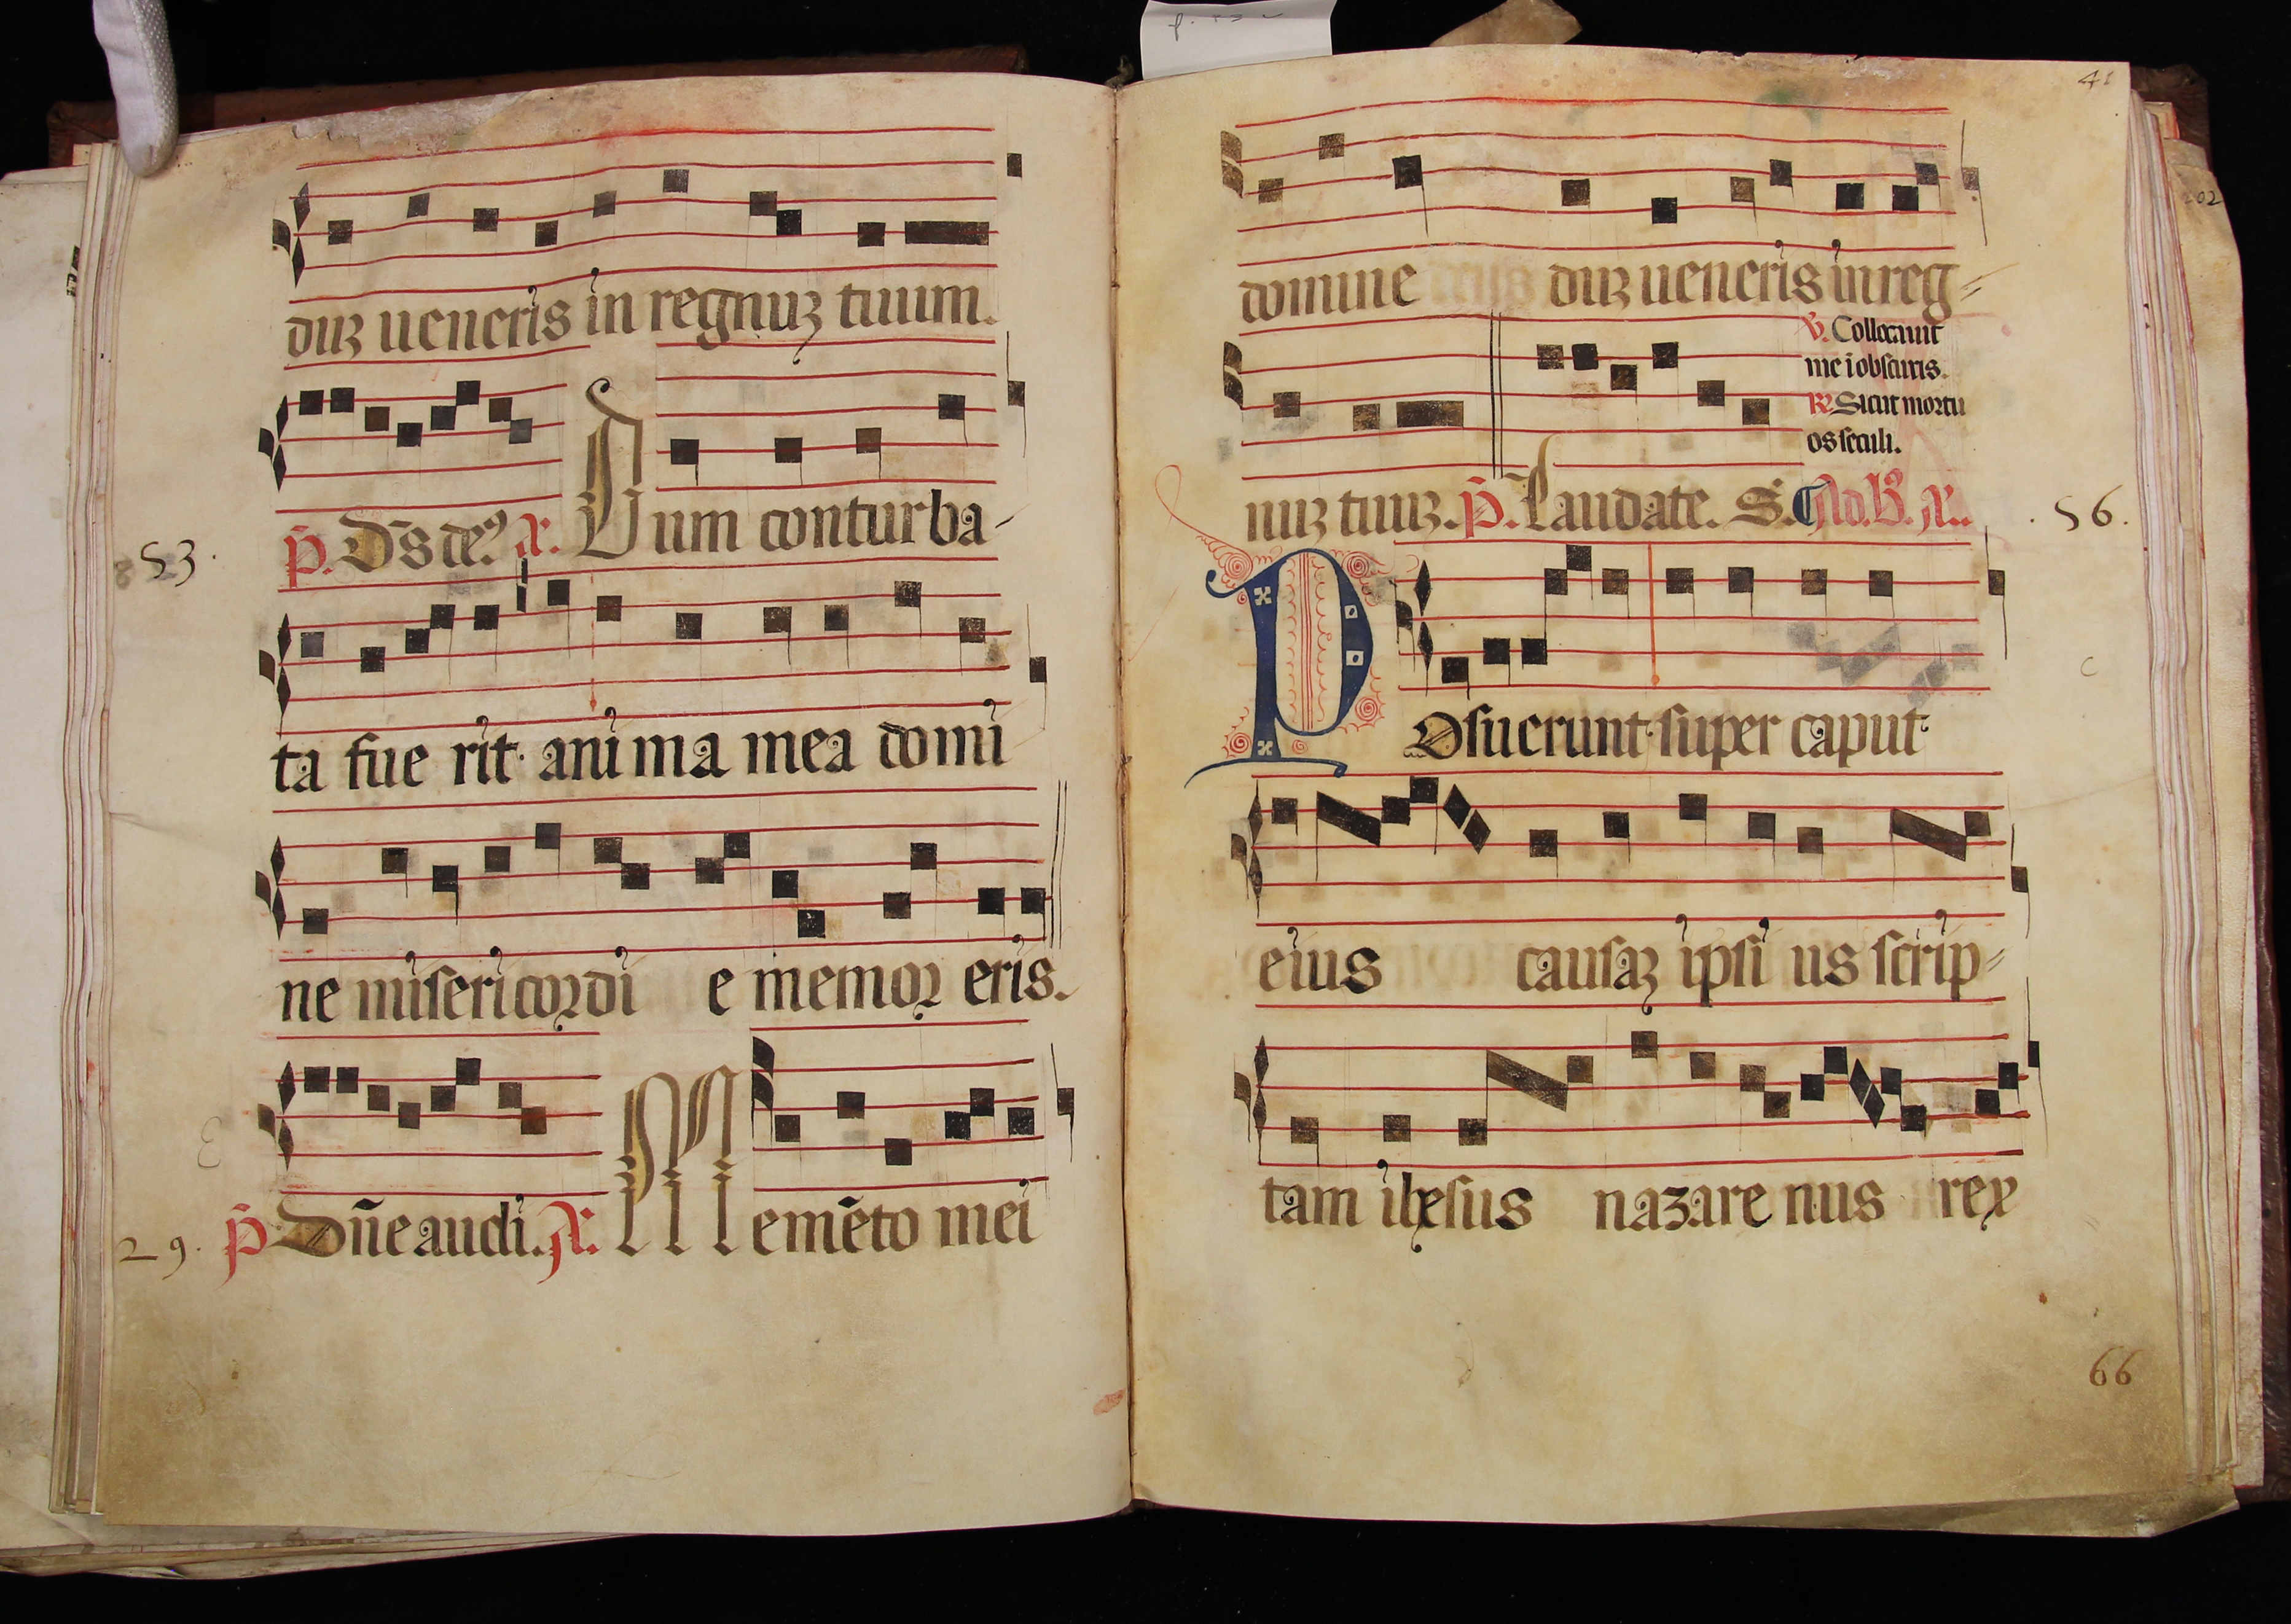 duʒ ueneris in regnuʒ tuum.
p̄. Dn̄s de⁹ A. Cum conturba-
53.
ta fue rit ani ma mea domi
ne misericordi e memor eris.
29. p̄ Dn̄e audi. A. Memēto mei
41
domine duʒ ueneris in reg-
V. Collocauit
me ī obscuris.
R. Sicut mortu
os seculi.
nuʒ tuuʒ. p̄. Laudate. S. Ad. B. A.
56.
Posuerunt super caput
eius causaʒ ipsi us scrip-
tam ihesus nazare nus rex
66